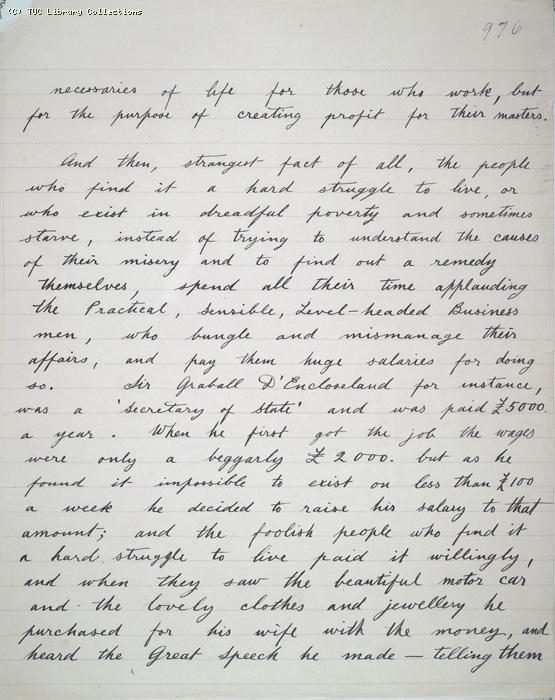 (C) TUC Library Collections
976
necessaries of life for those who work, but
for the purpose of creating profit for their masters.
And then, strangest fact of all, the people
who find it a hard struggle to live, or
who exist in dreadful poverty and sometimes
starve, instead of trying to understand the causes
of their misery and to find out a remedy
themselves, spend all their time applauding
the Practical, Sensible, Level-headed Business
men, who bungle and mismanage their
affairs, and pay them huge salaries for doing
so. Sir Graball D'Encloseland for instance,
was a 'Secretary of State' and was paid £5000.
a year. When he first got the job the wages
were only a beggarly £2000. but as he
found it impossible to exist on less than £100
a week he decided to raise his salary to that
amount; and the foolish people who find it
a hard struggle to live paid it willingly,
and when they saw the beautiful motor car
and the lovely clothes and jewellery he
purchased for his wife with the money, and
heard the Great Speech he made — telling them